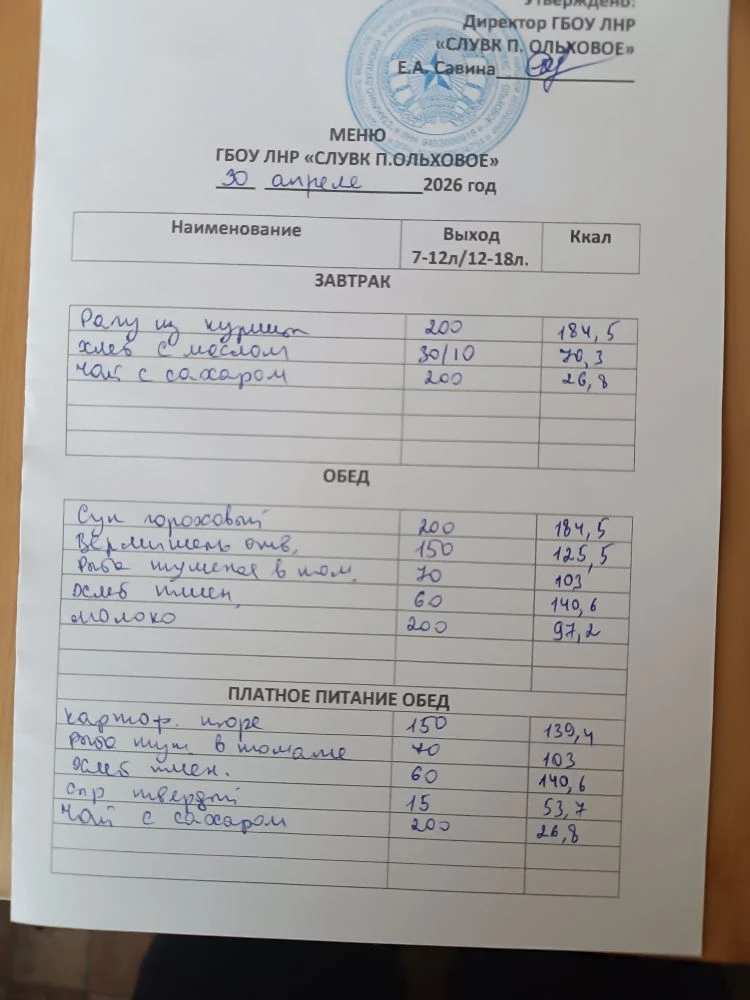 Утверждено:
Директор ГБОУ ЛНР
«СЛУВК П. ОЛЬХОВОЕ»
Е.А. Савина
МЕНЮ
ГБОУ ЛНР «СЛУВК П.ОЛЬХОВОЕ»
30 апреле 2026 год
Наименование Выход Ккал
7-12л/12-18л.
ЗАВТРАК
Рагу из курицы 200 184,5
Хлеб с маслом 30/10 70,3
Чай с сахаром 200 26,8
ОБЕД
Суп гороховый 200 184,5
Вермишель отв. 150 125,5
Рыба тушеная в том. 70 103
Хлеб пшен. 60 140,6
Молоко 200 97,2
ПЛАТНОЕ ПИТАНИЕ ОБЕД
Картоф. пюре 150 139,4
Рыба туш. в томате 70 103
Хлеб пшен. 60 140,6
Сыр твердый 15 53,7
Чай с сахаром 200 26,8